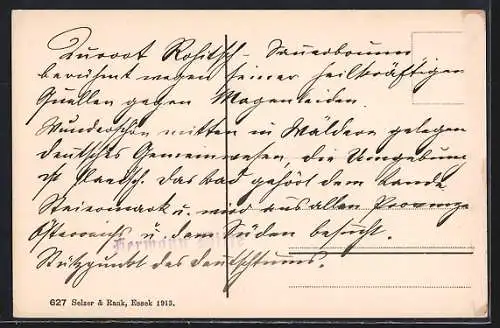 Kurort Rohitsch-Sauerbrunn
berühmt wegen seiner heilkräftigen
Quellen gegen Magenleiden.
Wunderschön mitten in Wäldern gelegen
deutsches Gemeinwesen, die Umgebung
ist slavisch. Das Bad gehört dem Lande
Steiermark u. wird aus allen Provinzen
Österreichs u. dem Süden besucht.
Hermann
Stützpunkt des Deutschtums.
627 Selzer & Rank, Essek 1913.